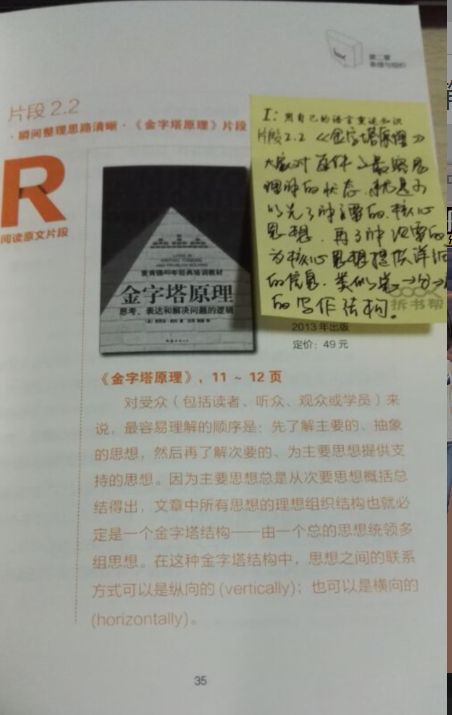 第二章
片段 2.2
·瞬间整理思路清晰·《金字塔原理》片段
R
阅读原文片段
I：用自己的语言重述知识
片段2.2 《金字塔原理》
大家对文件
理解的状态，就是可
以先了解主要的、核心
思想，再了解次要的
为核心思想提供详细
的信息。类似总→分→
的写作结构。
拆书帮
麦肯锡40年经典培训教材
金字塔原理
思考、表达和解决问题的逻辑
2013 年出版
定价：49 元
《金字塔原理》，11 ~ 12 页
对受众（包括读者、听众、观众或学员）来
说，最容易理解的顺序是：先了解主要的、抽象
的思想，然后再了解次要的、为主要思想提供支
持的思想。因为主要思想总是从次要思想概括总
结得出，文章中所有思想的理想组织结构也就必
定是一个金字塔结构——由一个总的思想统领多
组思想。在这种金字塔结构中，思想之间的联系
方式可以是纵向的 (vertically)；也可以是横向的
(horizontally)。
35